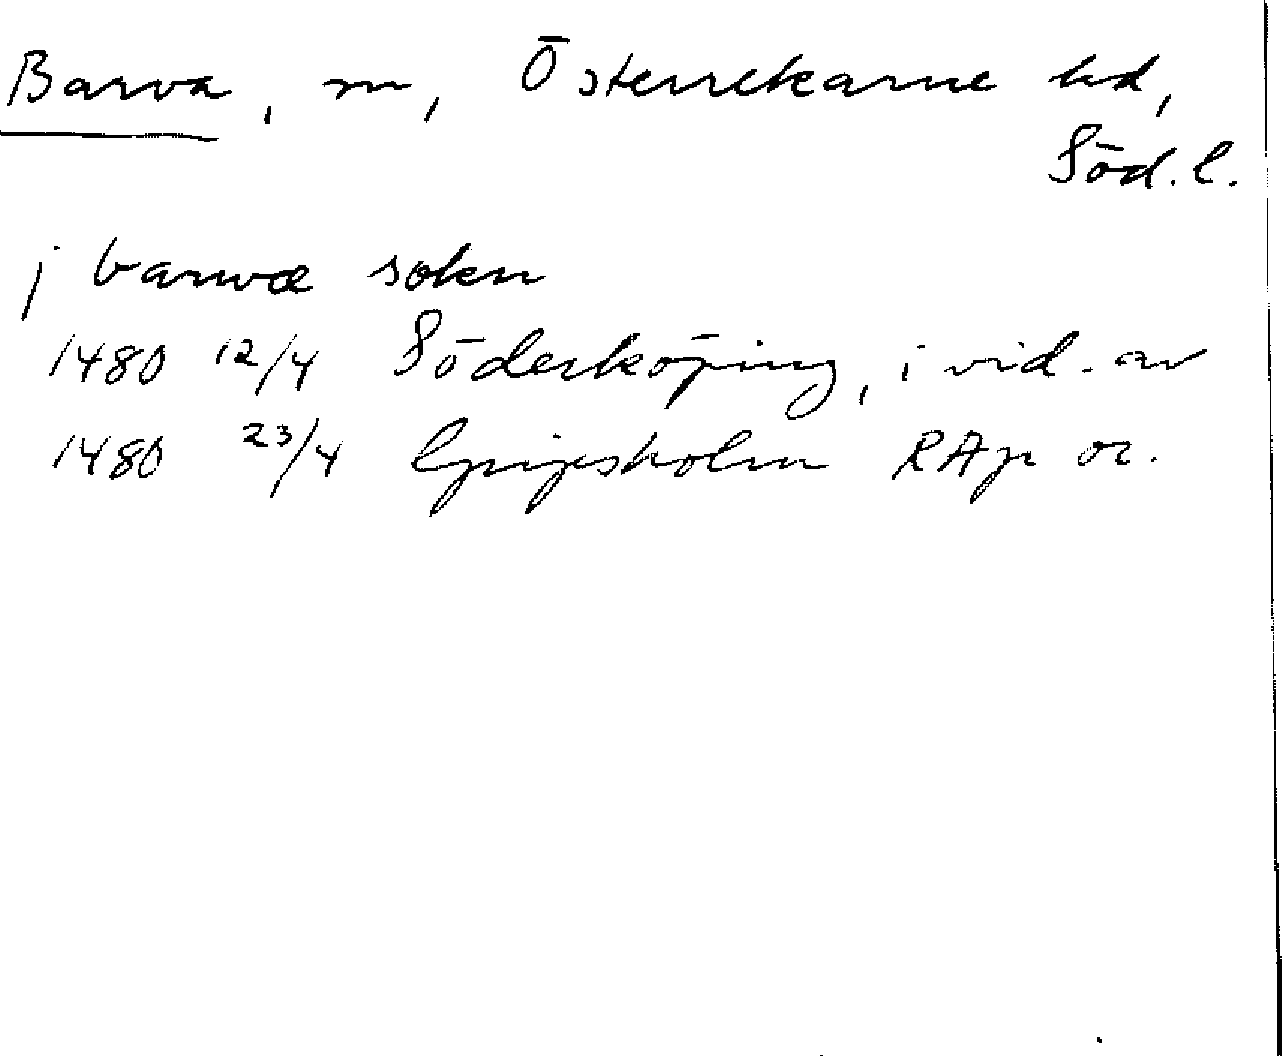 Barva, sn, Österrekarne hd,
Söd. l.
j barwæ sokn
1480 12/4 Söderköping, i vid. av
1480 23/4 Gripsholm RAp or.